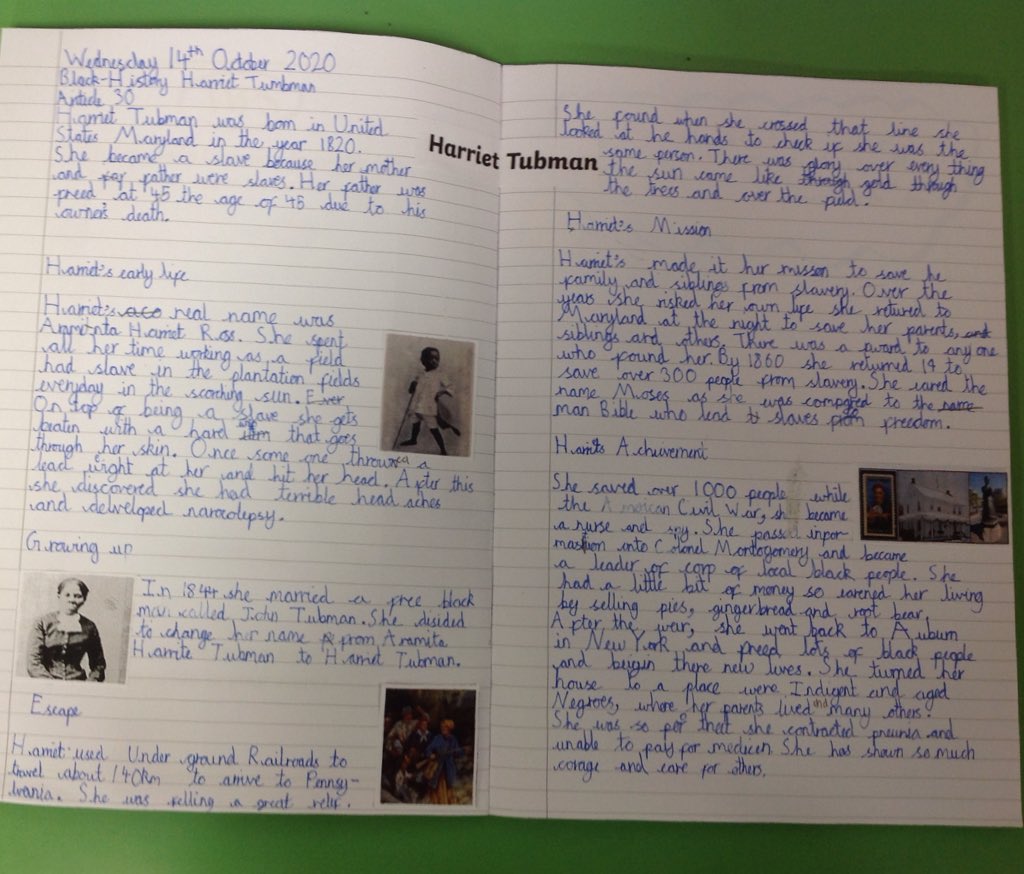 Wednesday 14th October 2020
Black-History Harriet Tumbman
Article 30
Harriet Tubman was born in United
States Maryland in the year 1820.
She became a slave because her mother
and father were slaves. Her father was
freed at 45 the age of 45 due to his
owners death.
Harriet's early life
Harriet's real name was
Armitnta Harriet Ross. She spent
all her time working as a field
had slave in the plantation fields
everyday in the scorching sun.
On top of being a slave she gets
beaten with a hard that goes
through her skin. Once some one throws a
lead wight at her and hit her head. After this
she discovered she had terrible head aches
and delveloped narcolepsy.
Growing up
In 1844 she married a free black
man called John Tubman. She disided
to change her name from Aramita
Harrite Tubman to Harriet Tubman.
Escape
Harriet used Under ground Railroads to
travel about 140km to arrive to Pennsy-
lvania. She was felling a great relif.
Harriet Tubman
She found when she crossed that line she
looked at he hands to check if she was the
same person. There was glory over every thing
the sun came like through gold through
the trees and over the feild.
Harriet's Mission
Harriet's made it her misson to save he
family and siblings from slavery. Over the
years she risked her own life she retured to
Maryland at the night to save her parents, and
siblings and others. There was a award to any one
who found her. By 1860 she returned 19 to
save over 300 people from slavery. She eared the
name Moses as she was compared to the same
man Bible who lend to slaves from freedom.
Harrits Achuvement
She saved over 1000 people while
the American Civil War, she became
a nurse and spy. She passed infor-
mastion into Colonel Montogomery and became
a leader of corp of local black people. She
had a little bit of money so earened her living
by selling pies, gingerbread and root bear.
After the war, she went back to Auburn
in New York and freed lots of black people
and beigun there new lives. She turned her
house to a place were Indigent and aged
Negroes, where her parents lived and many others.
She was so por that she contracted and
unable to pay for medicen. She has shown so much
corage and care for others.